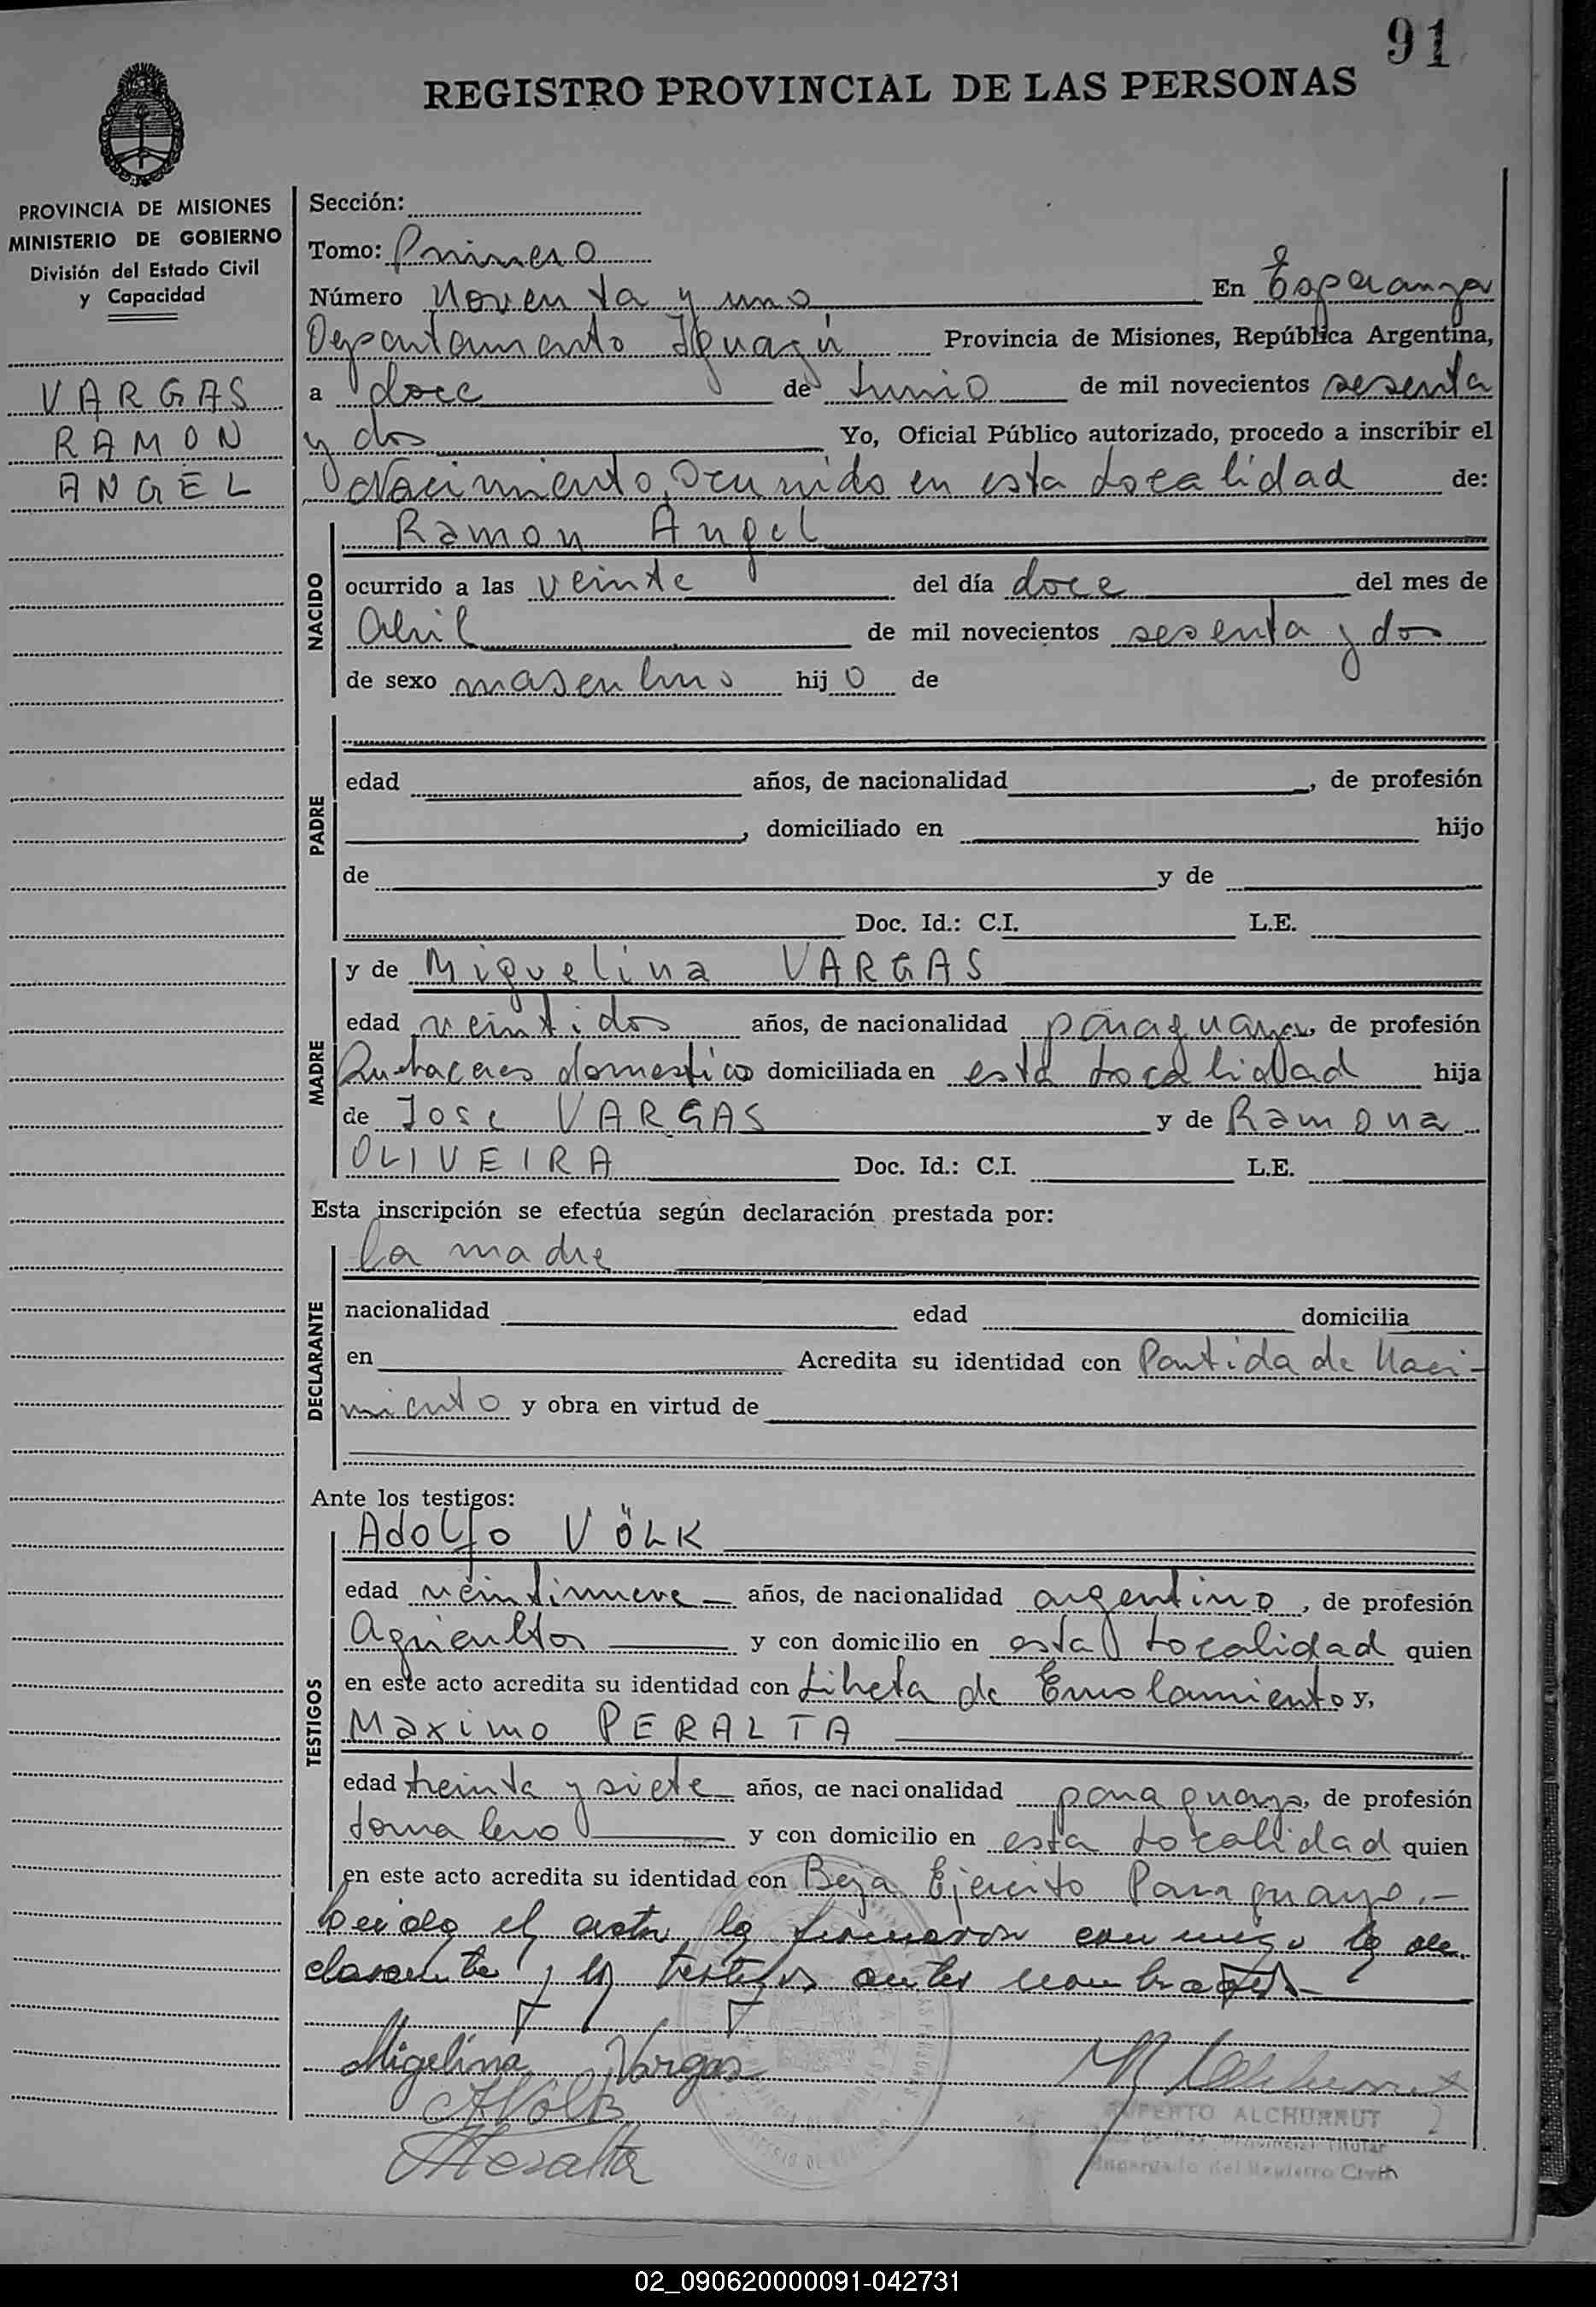 91
REGISTRO PROVINCIAL DE LAS PERSONAS
PROVINCIA DE MISIONES
MINISTERIO DE GOBIERNO
División del Estado Civil
y Capacidad
VARGAS
RAMON
ANGEL
Sección:
Tomo: Primero
Número Noventa y uno En Esperanza
Departamento Iguazú Provincia de Misiones, República Argentina,
a doce de Junio de mil novecientos sesenta
y dos Yo, Oficial Público autorizado, procedo a inscribir el
Nacimiento, Ocurrido en esta Localidad de:
NACIDO
Ramon Angel
ocurrido a las veinte del día doce del mes de
Abril de mil novecientos sesenta y dos
de sexo masculino hijo de
PADRE
edad años, de nacionalidad , de profesión
, domiciliado en hijo
de y de
Doc. Id.: C.I. L.E.
MADRE
y de Miguelina VARGAS
edad veintidos años, de nacionalidad paraguaya, de profesión
Quehaceres domestico domiciliada en esta Localidad hija
de Jose VARGAS y de Ramona
OLIVEIRA Doc. Id.: C.I. L.E.
Esta inscripción se efectúa según declaración prestada por:
DECLARANTE
la madre
nacionalidad edad domicilia
en Acredita su identidad con Partida de Naci-
miento y obra en virtud de
Ante los testigos:
TESTIGOS
Adolfo VÖLK
edad veintinueve años, de nacionalidad argentino, de profesión
Agricultor y con domicilio en esta Localidad quien
en este acto acredita su identidad con Libreta de Enrolamiento y,
Maximo PERALTA
edad treinta y siete años, de nacionalidad paraguayo, de profesión
Jornalero y con domicilio en esta Localidad quien
en este acto acredita su identidad con Beja Ejercito Paraguayo.-
Leido el acta, la firmaron conmigo la de
clarante y los testigos antes nombrados
Migelina Vargas
AVölk
MPeralta
RUPERTO ALCHURRUT
Juez de Paz Provincial Titular
Encargado del Registro Civil
02_090620000091-042731